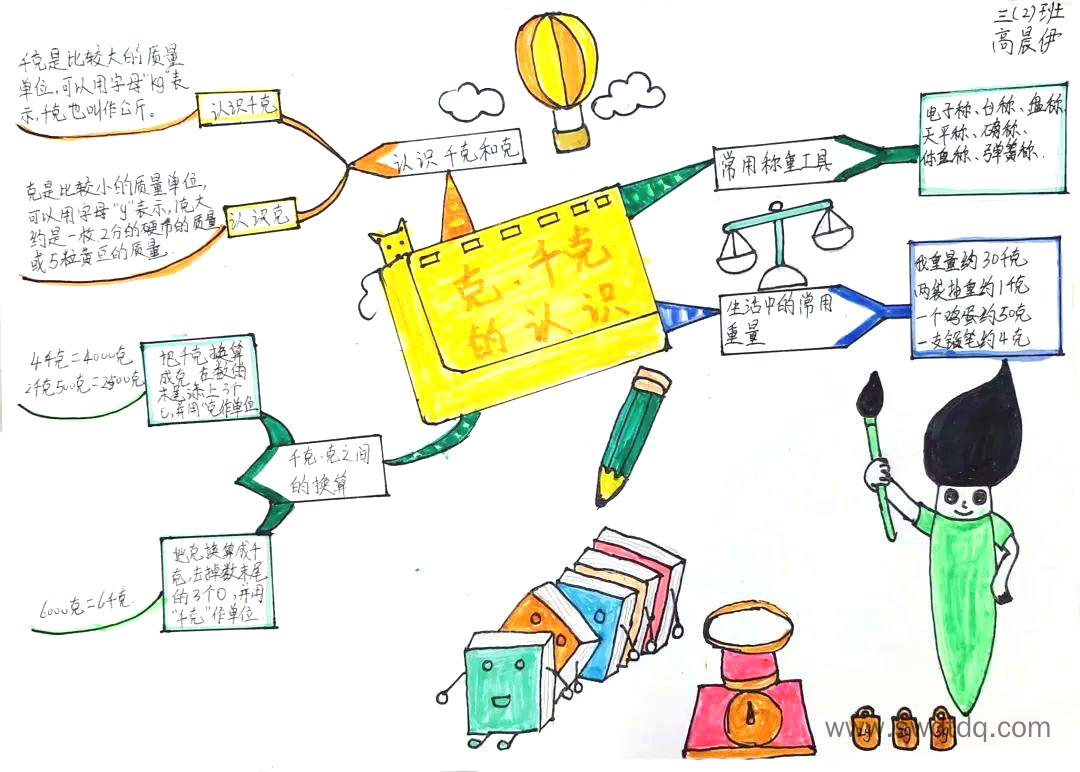 三(2)班
高晨伊
千克是比较大的质量
单位,可以用字母"kg"表
示,千克也叫作公斤。
认识千克
认识千克和克
克是比较小的质量单位,
可以用字母"g"表示,1克大
约是一枚2分的硬币的质量
或5粒黄豆的质量.
认识克
克、千克
的认识
常用称重工具
电子称、台称、盘称,
天平称、磅称、
体重称、弹簧称.
生活中的常用
重量
我重量约30千克
两袋盐重约1千克
一个鸡蛋约50克
一支铅笔约4克
千克、克之间
的换算
把千克换算
成克,在数的
末尾添上3个
0,并用"克"作单位
4千克=4000克
2千克500克=2500克
把克换算成千
克,去掉数末尾
的3个0,并用
"千克"作单位
6000克=6千克.
1g 2g 5g